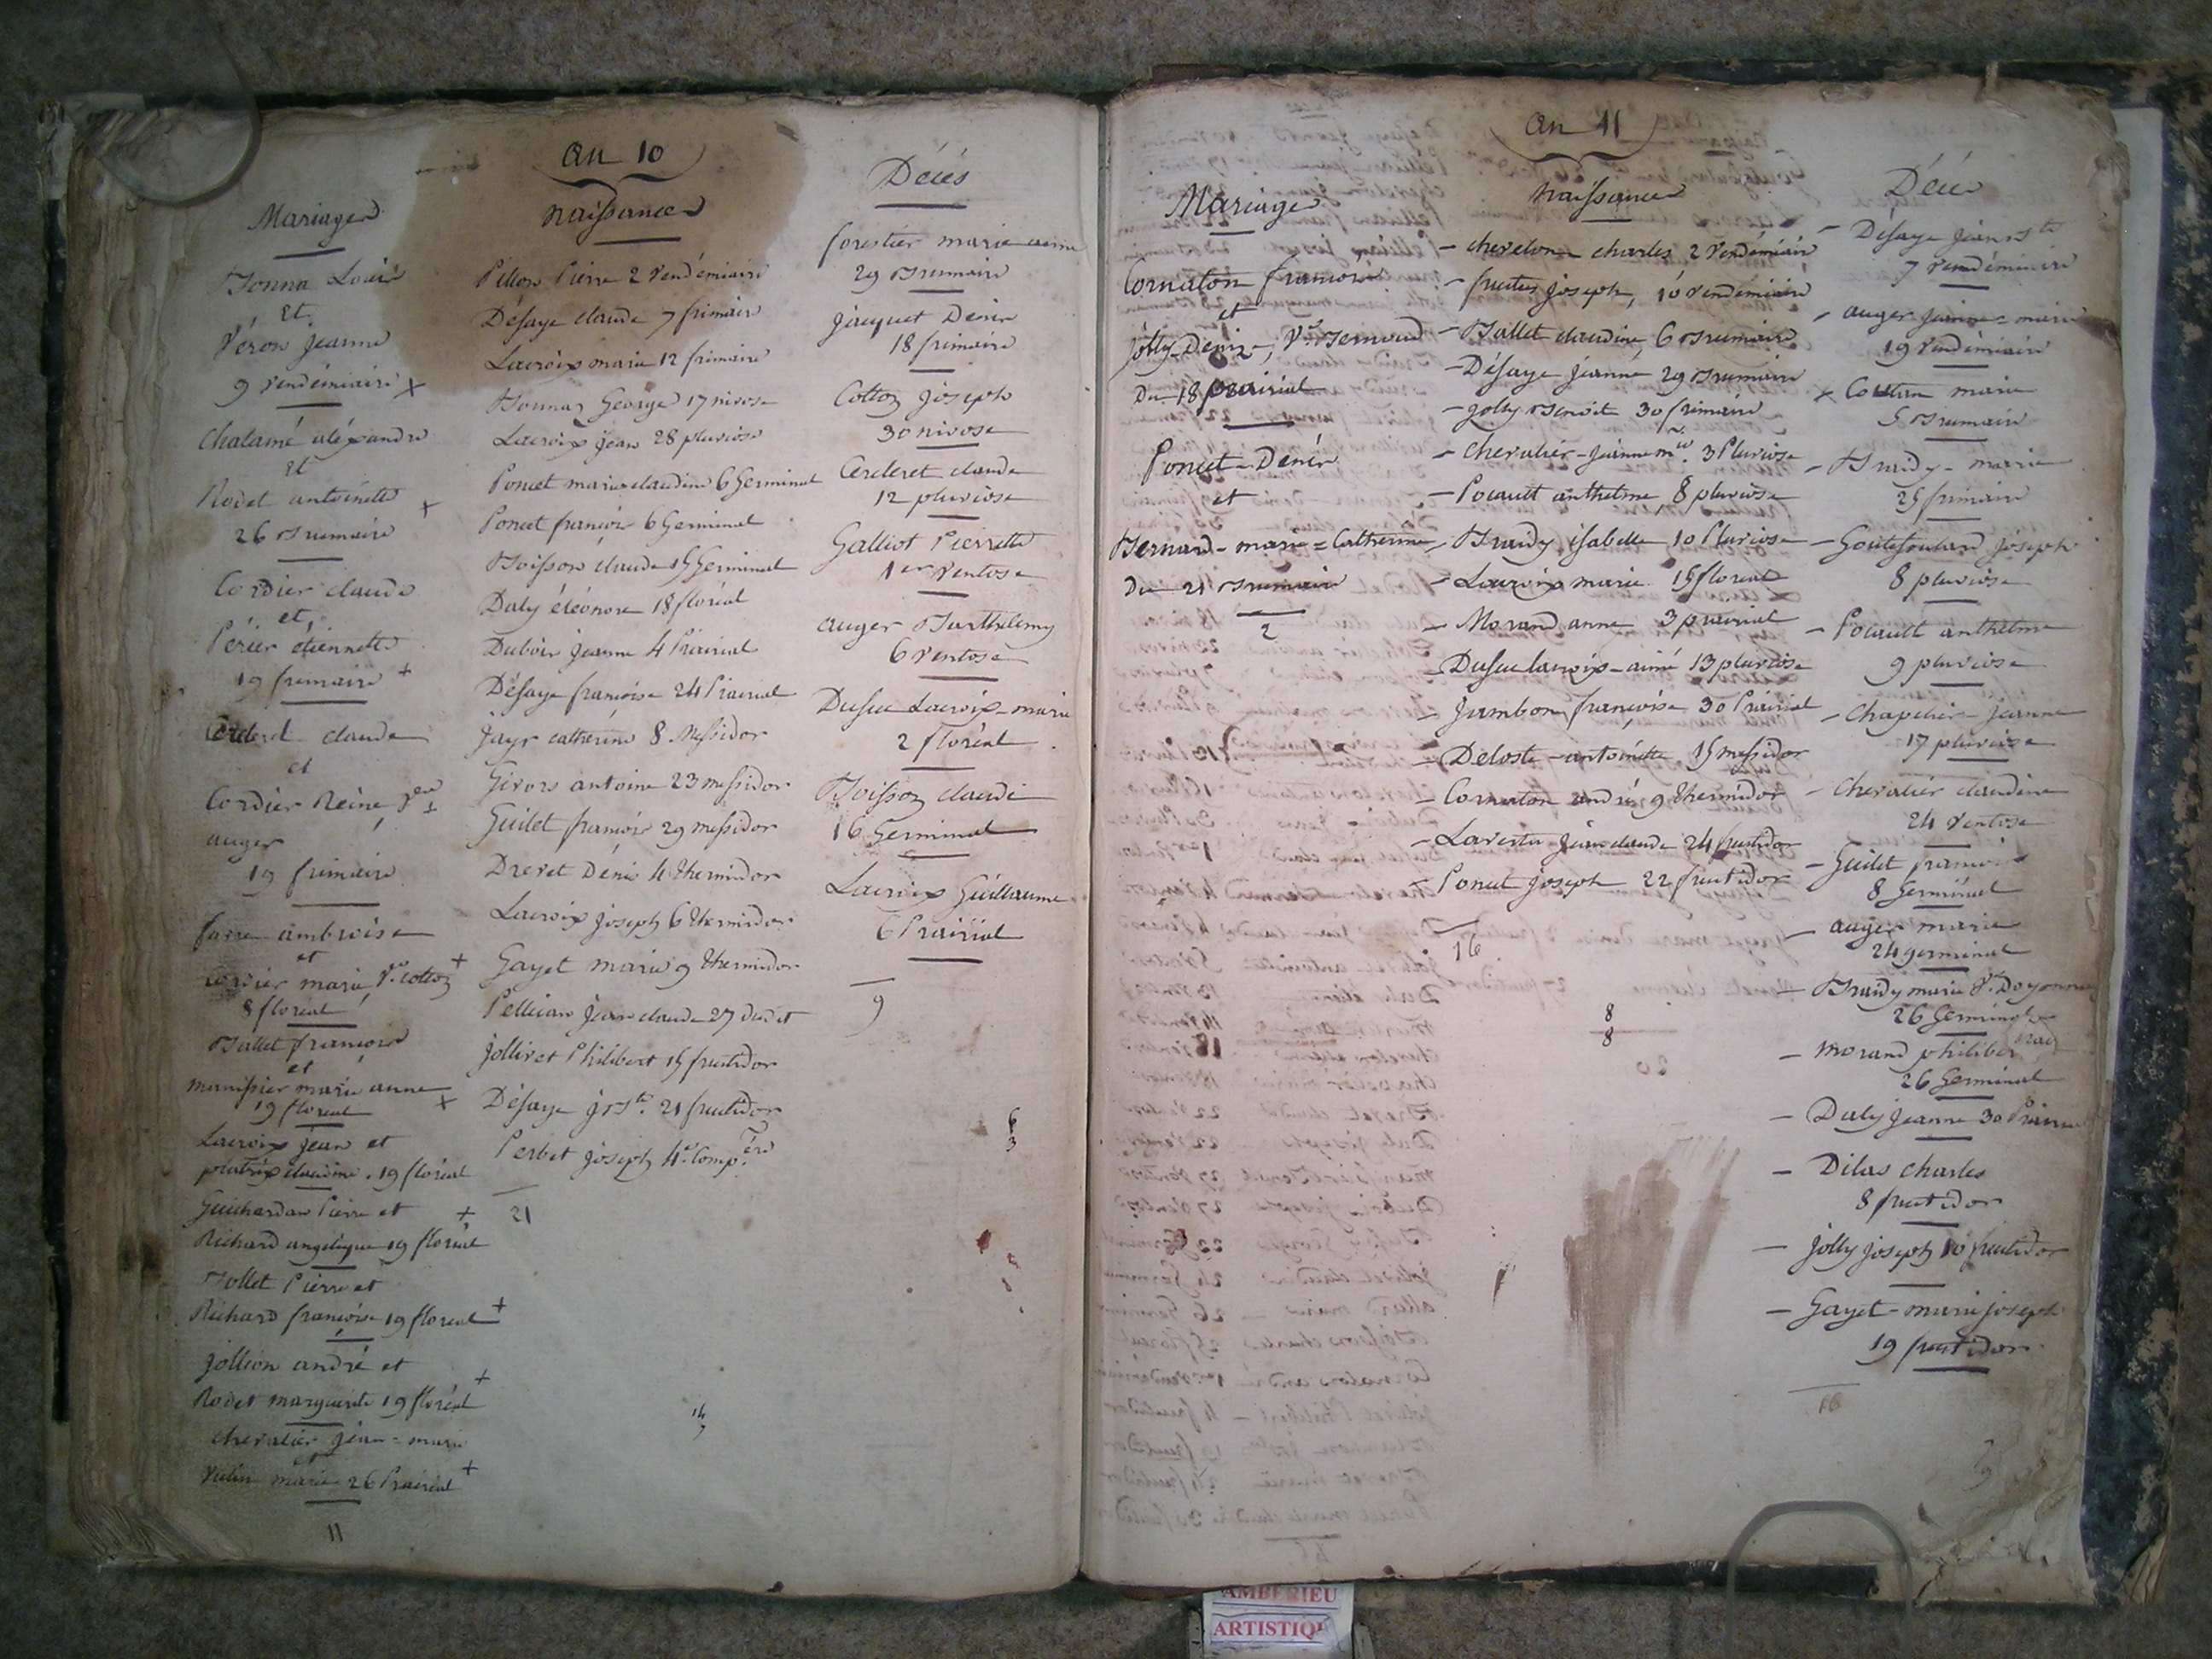 an 10
Mariages
Bonna Louis
et
Véron jeanne
9 vendémiaire +
chalamé aléxandre
et
Rodet antoinette +
26 Brumaire
Cordier claude
et,
Périer étiennette
19 frimaire +
Cerderet claude
et
Cordier Reine, veuve +
auger
19 frimaire
farre ambroise
et
Cordier marie, Ve. cottoz +
8 floreal
Ballet françois
et
marie anne +
19 floreal
Lacroix jean et
claudine. 19 floréal
Pierre et +
Richard angelique 19 floréal
Bollet Pierre et
Richard françoise 19 floreal +
jollion andré et
Rodet marguerite 19 floréal +
chevalier jean=marie
et
marie 26 Prairial +
11
naissances
Pillon Pierre 2 vendémiaire
Défaye claude 7 frimaire
Lacroix marie 12 frimaire
Bonnaz George 17 nivose
Lacroix jean 28 pluviose
Poncet marie claudine 6 Germinal
Poncet françois 6 Germinal
Boisson claude 15 Germinal
Daly éléonore 18 floréal
Dubois jeanne 4 Prairial
Défaye françoise 24 Prairial
jayr catherine 8 Messidor
Givors antoine 23 messidor
Guilet françois 29 messidor
Drevet Dénis 4 thermidor
Lacroix joseph 6 thermidor
Gayet marie 9 thermidor
Pellican jean claude 27 dudit
jollivet Philibert 15 fructidor
Défaye j. Bte. 21 fructidor
Perbet joseph 4e. Comp.ére
21
Décès
forestier marie anne
29 Brumaire
jacquet Denis
18 frimaire
Cottoz joseph
30 nivose
Cerderet claude
12 pluviose
Galliot Pierrette
1er ventose
auger Barthélemy
6 ventose
Dufuc Lacroix-marie
2 floréal
Boisson claude
16 Germinal
Lacroix Guillaume
6 Prairial
9
6
3
an 11
Mariages
Cornaton françois
et
jolly Denize, Ve. Bernard
Du 18 prairial
Poncet-Dénis
et
Bernard-marie=Catherine
Du 21 Brumaire
2
naissances
- chevelon charles 2 vendémiaire
- joseph, 10 vendémiaire
- Ballet claudine, 6 Brumaire
- Défaye jeanne 29 Brumaire
- jolly Benoit 30 frimaire
- chevalier-jeanne mie. 3 Pluviose
- Pocault anthelme, 8 pluviose
- Brudy isabelle 10 Pluviose
- Lacroix marie 15 floreal
- Morand anne 3 prairial
- Dufuc lacroix-aimé 13 pluviose
- jambon françoise 30 Prairial
- Deloste-antoinette 15 messidor
- Cornaton andré 9 thermidor
- jean claude 24 fructidor
- Poncet joseph 22 fructidor
16
8
8
Décès
- Défaye jean Bte
7 vendémiaire
- auger jeanne=marie
19 vendémiaire
marie
5 Brumaire
- Brudy-marie
25 frimaire
- Goutefoulard joseph
8 pluviose
- Pocault anthelme
9 pluviose
- chapelier-jeanne
17 pluviose
- chevalier claudine
24 ventose
- Guilet françois
8 Germinal
- auger marie
24 germinal
- Brudy marie Ve. Doyonnax
26 Germinal
- morand philibert
26 Germinal
- Daly jeanne 30 Prairial
- Dilas charles
8 fructidor
- jolly joseph 10 fructidor
- Gayet-marie joseph
19 fructidor
16
AMBERIEU
ARTISTIQ